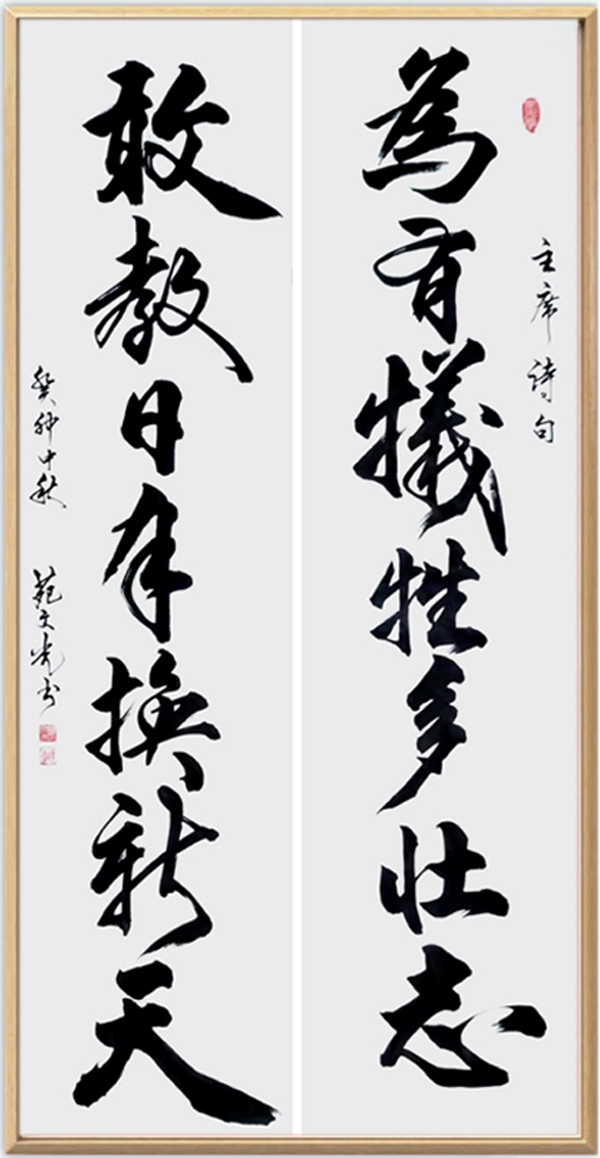 主席诗句
為有犧牲多壮志
敢教日換新天
癸卯中秋 范文光书